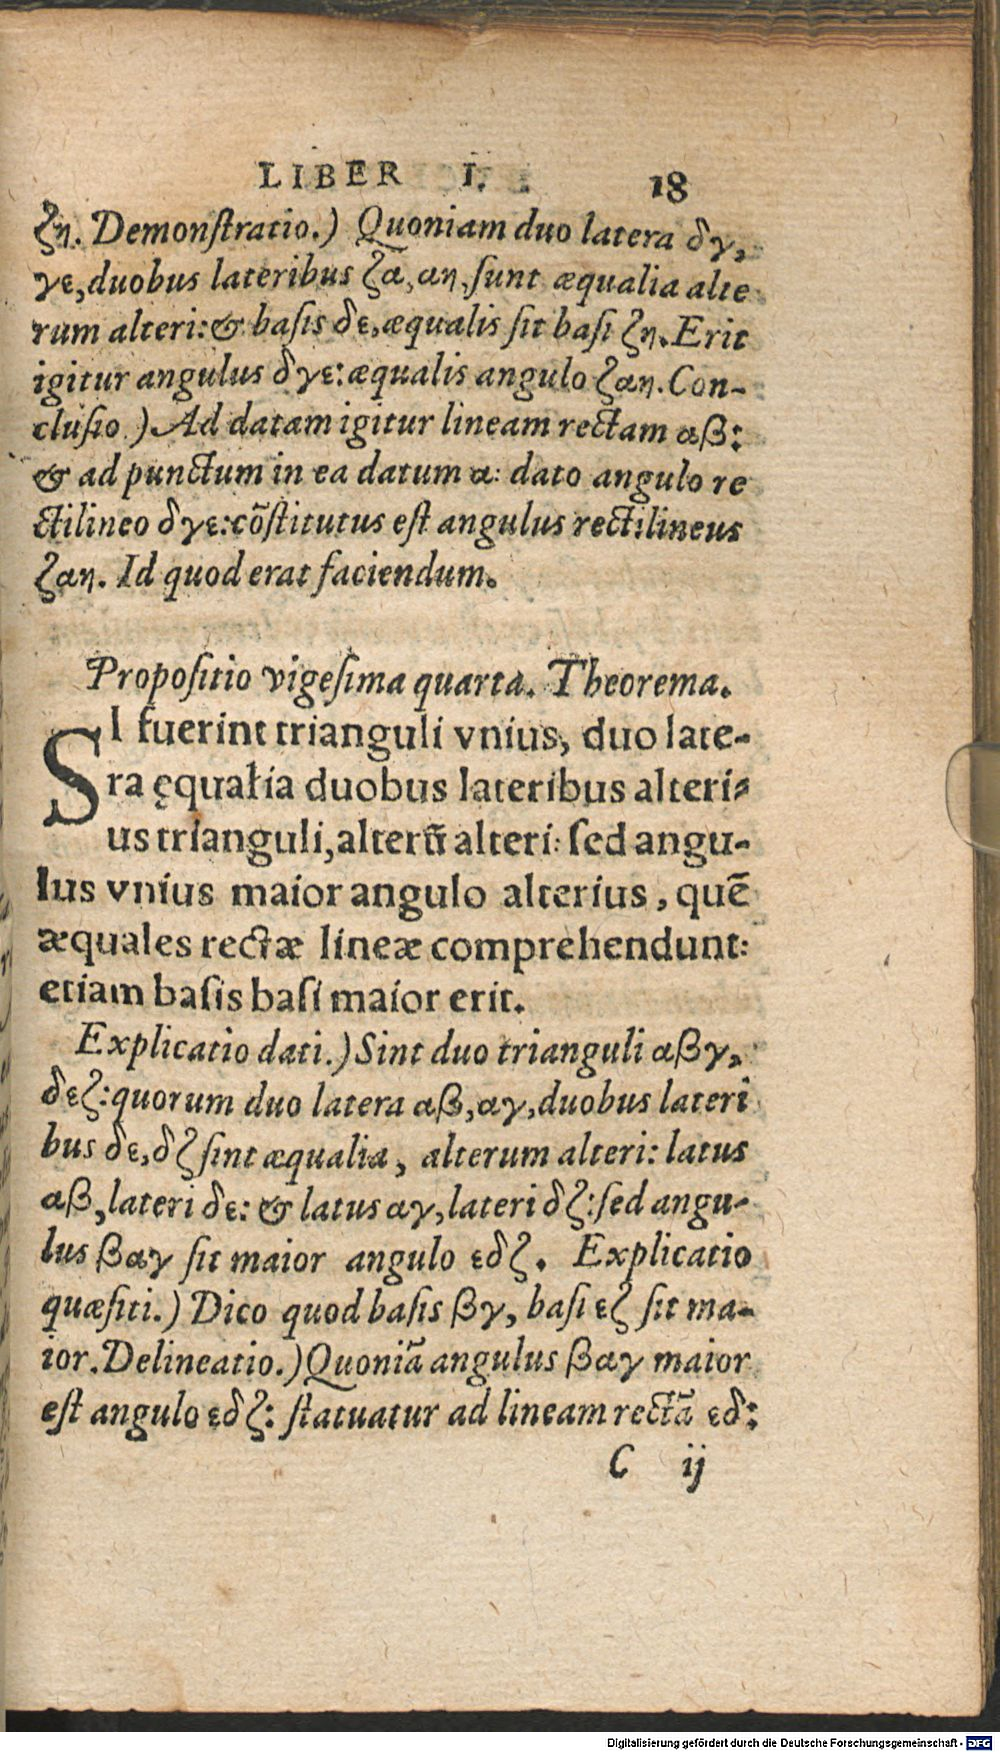 LIBER I. 18
ζη. Demonſtratio.) Quoniam duo latera δγ,
γε, duobus lateribus ζα, αη, ſunt æqualia alte
rum alteri: & baſis δε, æqualis ſit baſi ζη. Erit
igitur angulus δγε: æqualis angulo ζαη. Con-
cluſio.) Ad datam igitur lineam rectam αβ:
& ad punctum in ea datum α: dato angulo re
ctilineo δγε: cõſtitutus eſt angulus rectilineus
ζαη. Id quod erat faciendum.
Propoſitio vigeſima quarta. Theorema.
SI fuerint trianguli vnius, duo late-
ra ęqualia duobus lateribus alteri-
us trianguli, alterũ alteri: ſed angu-
lus vnius maior angulo alterius, quẽ
æquales rectæ lineæ comprehendunt:
etiam baſis baſi maior erit.
Explicatio dati.) Sint duo trianguli αβγ,
δεζ: quorum duo latera αβ, αγ, duobus lateri
bus δε, δζ ſint æqualia, alterum alteri: latus
αβ, lateri δε: & latus αγ, lateri δζ: ſed angu-
lus βαγ ſit maior angulo εδζ. Explicatio
quæſiti.) Dico quod baſis βγ, baſi εζ ſit ma-
ior. Delineatio.) Quoniã angulus βαγ maior
eſt angulo εδζ: ſtatuatur ad lineam rectã εδ:
C ij
Digitalisierung gefördert durch die Deutsche Forschungsgemeinschaft - DFG